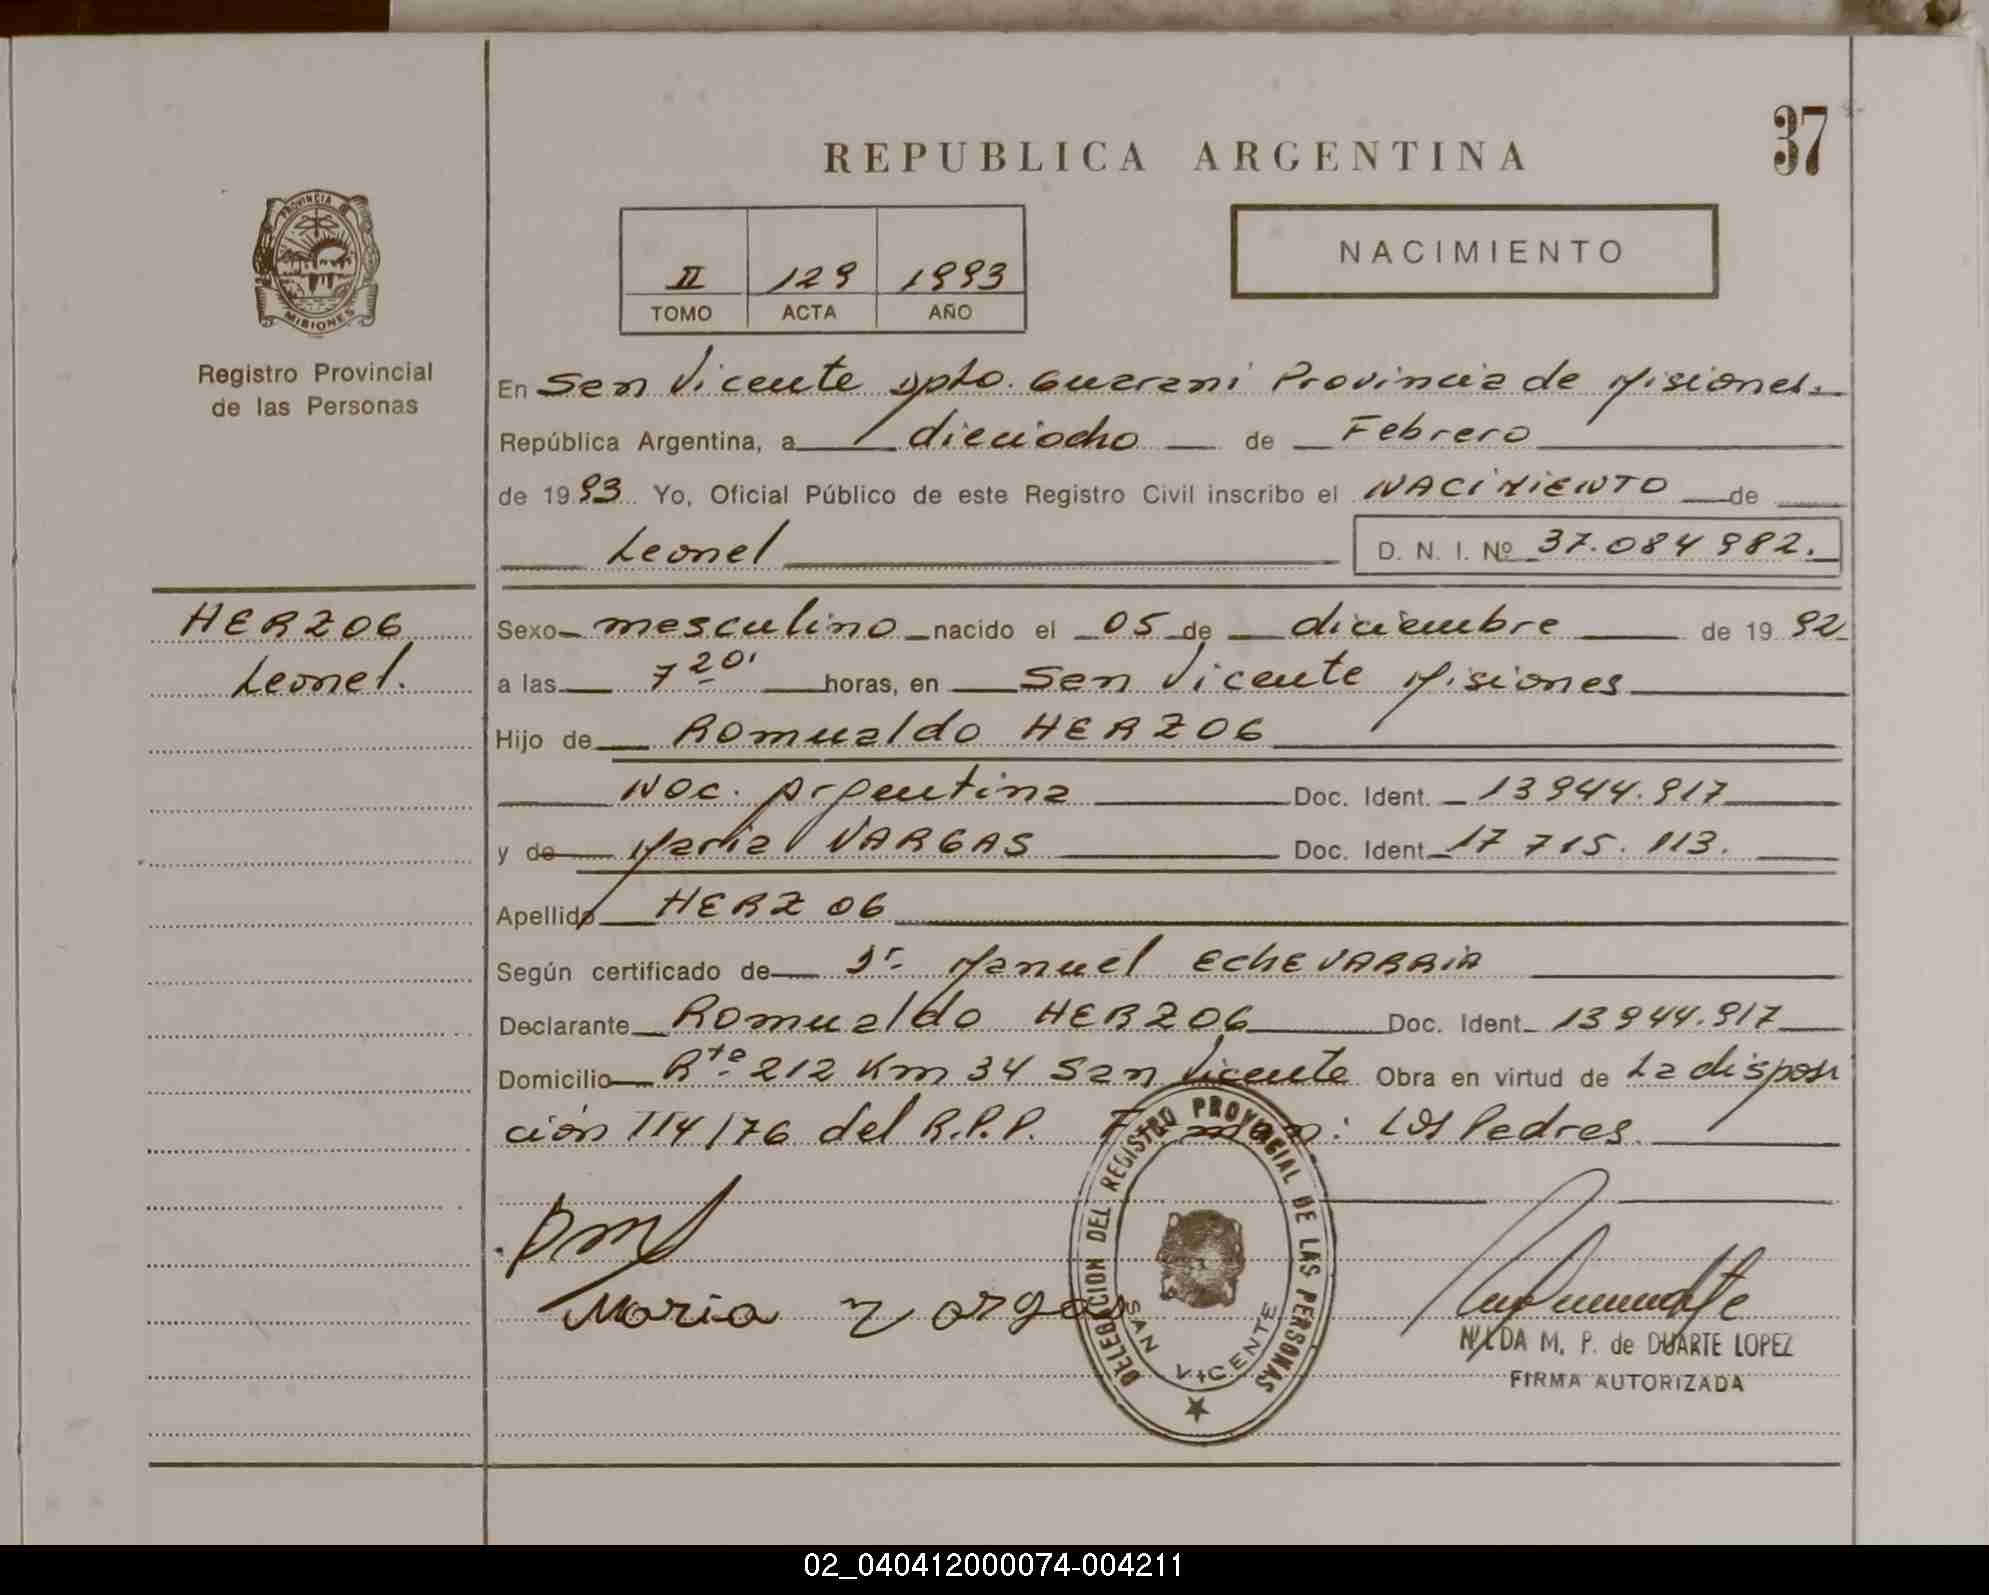 37
REPUBLICA ARGENTINA
NACIMIENTO
II 129 1993
TOMO ACTA AÑO
PROVINCIA DE
MISIONES
Registro Provincial
de las Personas
En San Vicente Dpto. Guarani Provincia de Misiones.
República Argentina, a dieciocho de Febrero
de 1993 Yo, Oficial Público de este Registro Civil inscribo el NACIMIENTO de
Leonel D. N. I. Nº 37.084 982.
HERZOG
Leonel.
Sexo masculino nacido el 05 de diciembre de 1992
a las 7 20' horas, en San Vicente Misiones
Hijo de Romualdo HERZOG
Nac. Argentina Doc. Ident. 13 944.917
y de Maria VARGAS Doc. Ident. 17 715.113.
Apellido HERZOG
Según certificado de Dr. Manuel EcheVARRIA
Declarante Romualdo HERZOG Doc. Ident. 13 944.917
Domicilio Rta 212 Km 34 San Vicente Obra en virtud de La disposi
ción 114/76 del R.P.P. Firman: Los Padres.
Maria Vargas
DELEGACION DEL REGISTRO PROVINCIAL DE LAS PERSONAS
SAN VICENTE
NILDA M. P. de DUARTE LOPEZ
FIRMA AUTORIZADA
02_040412000074-004211